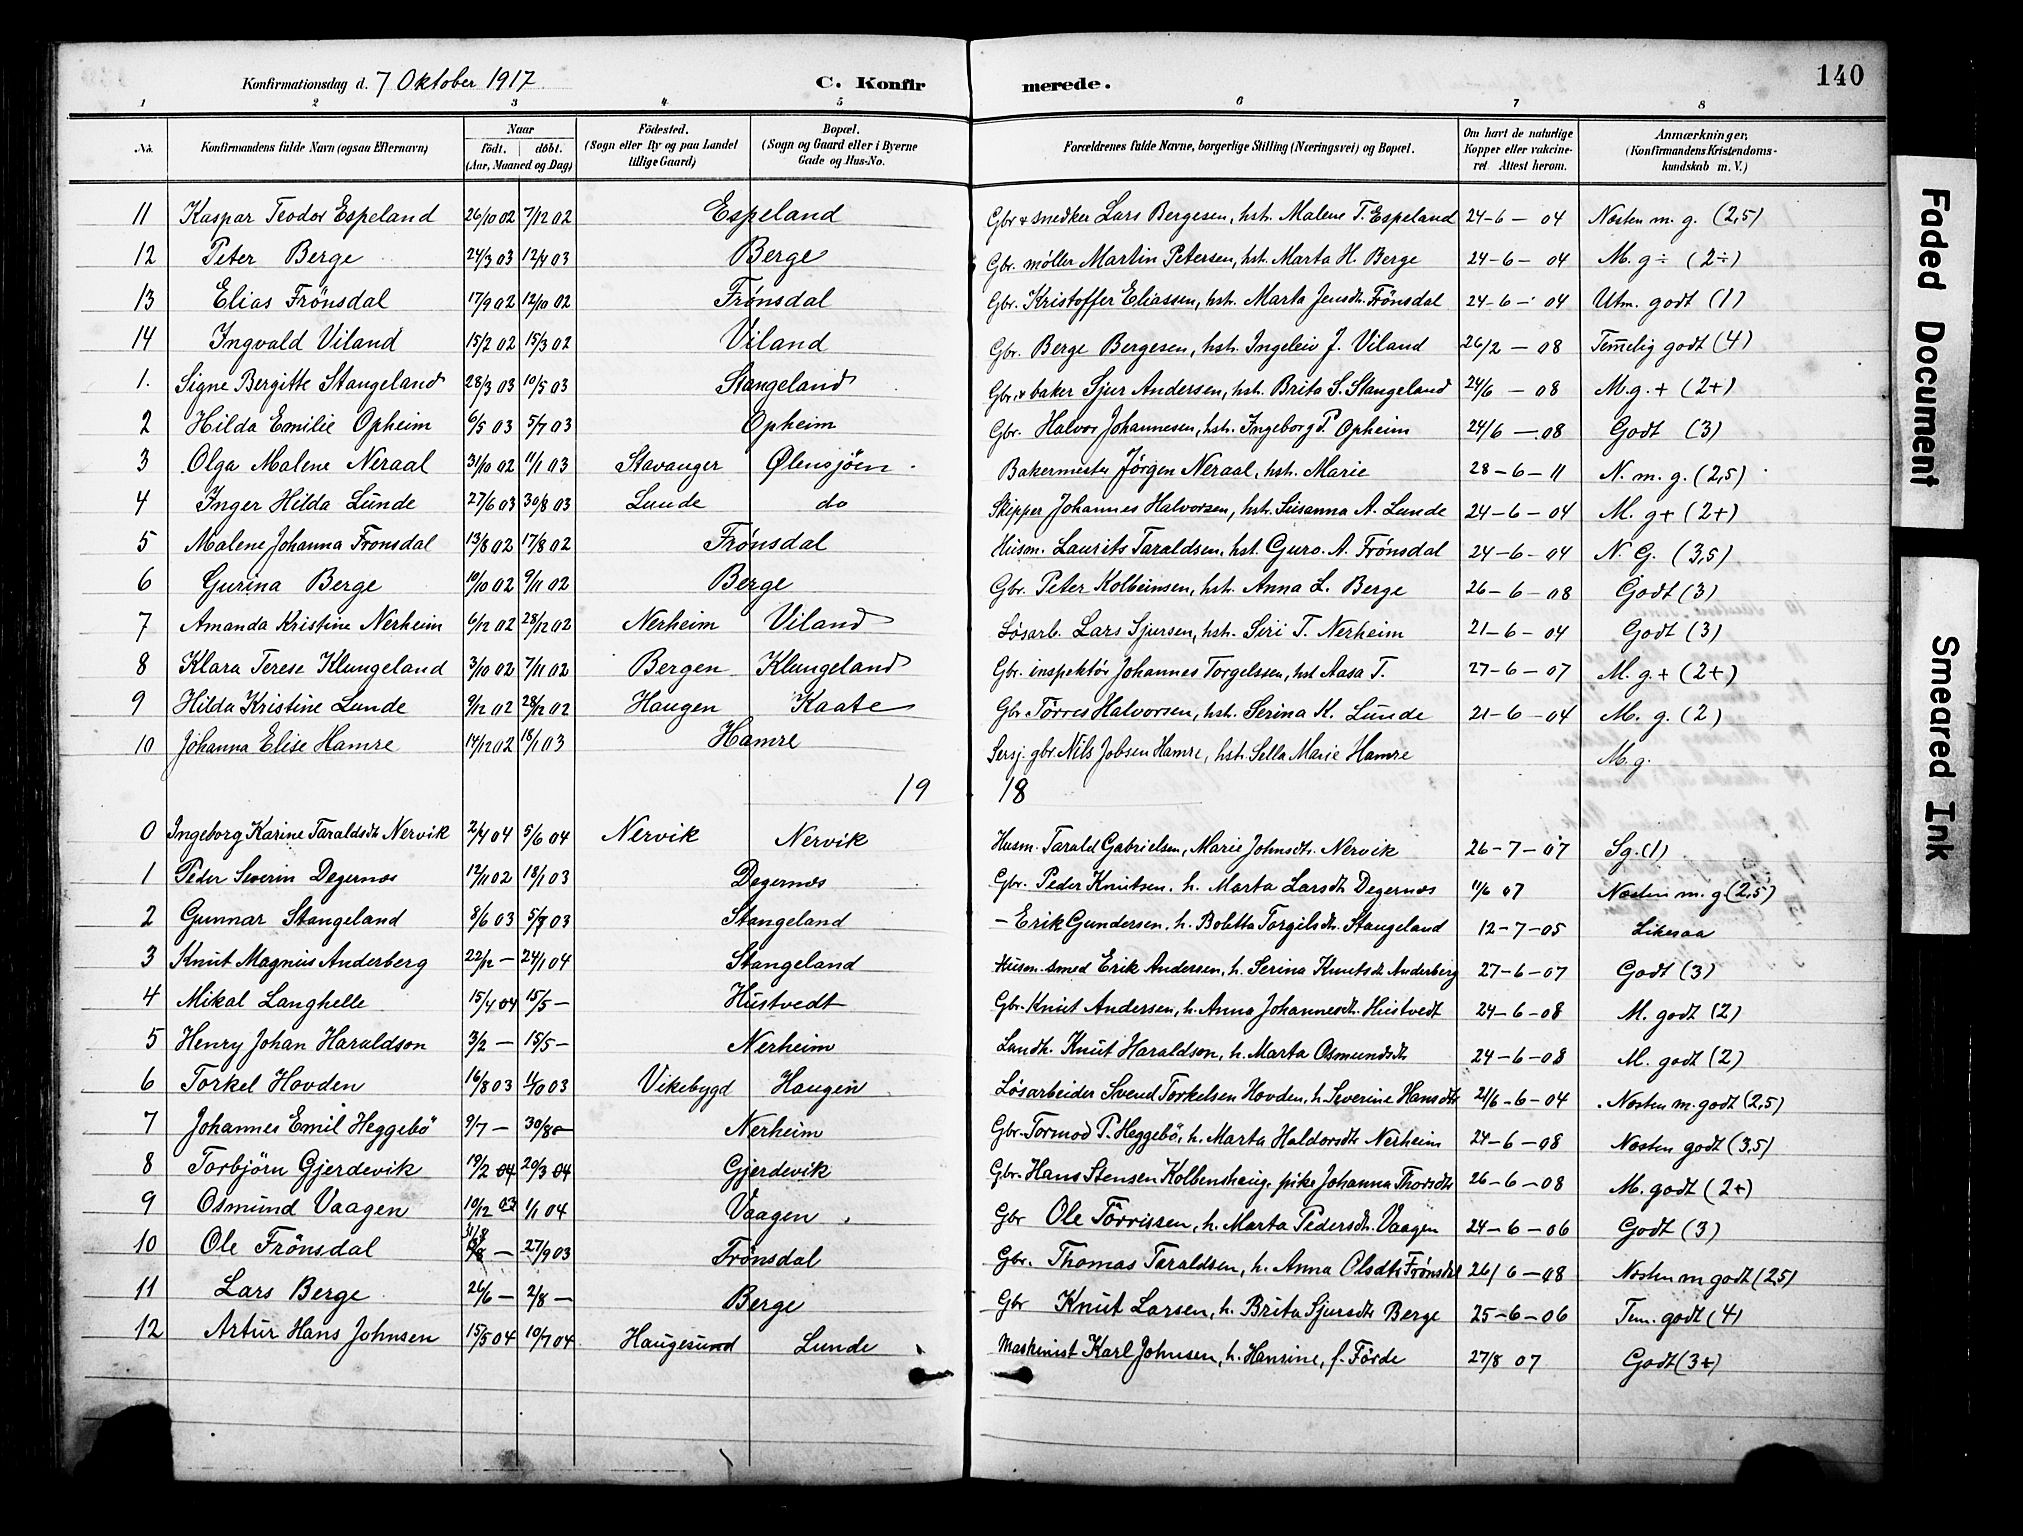 Konfirmationsdag d. 7 Oktober 1917 C. Konfirmerede. 140
1 2 3 4 5 6 7 8
No. Konfirmandens fulde Navn (ogsaa Efternavn) Naar født. døbt. (Aar, Maaned og Dag) Fødested. (Sogn eller By og paa Landet tillige Gaard) Bopæl. (Sogn og Gaard eller i Byerne Gade og Hus-No. Forældrenes fulde Navne, borgerlige Stilling (Næringsvei) og Bopæl. Om havt de naturlige Kopper eller vakcineret Attest herom. Anmærkninger, (Konfirmandens Kristendomskundskab m. V.)
11 Kaspar Teodor Espeland 26/10 02 7/12 02 Espeland Gbr & snedker Lars Bergesen, hst. Malene T. Espeland 24-6-04 Næsten m. g. (2,5)
12 Peter Berge 24/3 03 12/4 03 Berge Gbr. møller Martin Petersen, hst. Marta H. Berge 24-6-04 M. g ÷ (2÷)
13 Elias Frönsdal 17/9 02 12/10 02 Frönsdal Gbr. Kristoffer Eliassen, hst. Marta Jensdt. Frönsdal 24-6-04 Utm. godt (1)
14 Ingvald Viland 15/2 02 15/3 02 Viland Gbr. Berge Bergesen, hst. Ingeleiv J. Viland 26/2-08 Temelig godt (4)
1. Signe Bergitte Stangeland 28/3 03 10/5 03 Stangeland Gbr. & baker Sjur Andersen, hst. Brita S. Stangeland 24/6-08 M. g. + (2+)
2 Hilda Emilie Opheim 6/5 03 5/7 03 Opheim Gbr. Halvor Johannesen, hst. Ingeborg P. Opheim 24/6-08 Godt (3)
3 Olga Malene Neraal 31/10 02 11/1 03 Stavanger Ølensjöen Bakermester Jørgen Neraal, hst. Marie 28-6-11 N. m. g. (2,5)
4 Inger Hilda Lunde 27/6 03 30/8 03 Lunde do Skipper Johannes Halvorsen, hst. Susanna A. Lunde 24-6-04 M. g + (2+)
5 Malene Johanna Fronsdal 13/8 02 17/8 02 Frönsdal Husm. Laurits Taraldsen, hst. Guro. A. Frönsdal 24-6-04 N. G. (3,5)
6 Gurina Berge 10/10 02 9/11 02 Berge Gbr. Peter Kolbeinsen, hst. Anna L. Berge 26-6-08 Godt (3)
7 Amanda Kristine Nerheim 6/12 02 28/12 02 Nerheim Viland Løsarb. Lars Sjursen, hst. Siri T. Nerheim 21-6-04 Godt (3)
8 Klara Terese Klungeland 3/10 02 7/11 02 Bergen Klungeland Gbr. inspektör Johannes Torgelssen, hst Aasa T. 27-6-07 M. g + (2+)
9 Hilda Kristine Lunde 9/12 02 28/12 02 Haugen Kaate Gbr. Törres Halvorsen, hst. Serina K. Lunde 21-6-04 M. g. (2)
10 Johanna Elise Hamre 14/12 02 18/1 03 Hamre Sersj. gbr. Nils Jobsen Hamre, hst. Sella Marie Hamre M. g.
19 18
0 Ingeborg Karine Taraldsdt Nervik 2/4 04 5/6 04 Nervik Nervik Husm. Tarald Gabrielsen, Marie Johnsdt. Nervik 26-7-07 Sg. (1)
1 Peder Severin Degernes 12/11 02 18/1 03 Degernes Gbr. Peder Knutsen. h. Marta Larsdt Degernes 11/6 07 Næsten m. g. (2,5)
2 Gunnar Stangeland 8/6 03 5/7 03 Stangeland - Erik Gundersen, h. Boletta Torgilsdt. Stangeland 12-7-05 Likesaa
3 Knut Magnus Anderberg 22/12 - 24/1 04 Stangeland Husm. smed Erik Andersen, h. Serina Knutsdt Anderberg 27-6-07 Godt (3)
4 Mikal Langhelle 15/4 04 15/5 - Hustvedt Gbr. Knut Andersen, h. Anna Johannesdt. Hustvedt 24-6-08 M. godt (2)
5 Henry Johan Haraldson 3/2 - 15/5 - Nerheim Landh. Knut Haraldson, h. Marta Osmundsdt 24-6-08 M. godt (2)
6 Torkel Hovden 16/8 03 4/10 03 Vikebygd Haugen Løsarbeider Svend Torkelsen Hovden, h. Severine Hansdt 21/6-6-04 Næsten m. godt (2,5)
7 Johannes Emil Heggebö 9/7 - 30/8 - Nerheim Gbr. Tormod P. Heggebö, h. Marta Haldorsdt Nerheim 24-6-08 Næsten godt (3,5)
8 Torbjörn Gjerdevik 19/2 04 20/3 04 Gjerdevik Gbr. Hans Stensen Kolbenshaug. pike Johanna Thorsdt 26-6-08 M. godt (2+)
9 Osmund Vaagen 10/12 03 1/1 04 Vaagen Gbr Ole Torrissen, h. Marta Pedersdt. Vaagen 24-6-06 Godt (3)
10 Ole Frönsdal 31/8 - 27/9 03 Frönsdal Gbr. Thomas Taraldsen, h. Anna Olsdtr Frönsdal 26/6-08 Næsten m godt (25)
11 Lars Berge 26/6 - 2/8 - Berge Gbr Knut Larsen, h. Brita Sjursdt Berge 25-6-06 Tem. godt (4)
12 Artur Hans Johnsen 15/5 04 10/7 04 Haugesund Lunde Maskinist Karl Johnsen, h. Hansine, f. Förde 27/8 07 Godt (3+)
Faded Document
Smeared Ink